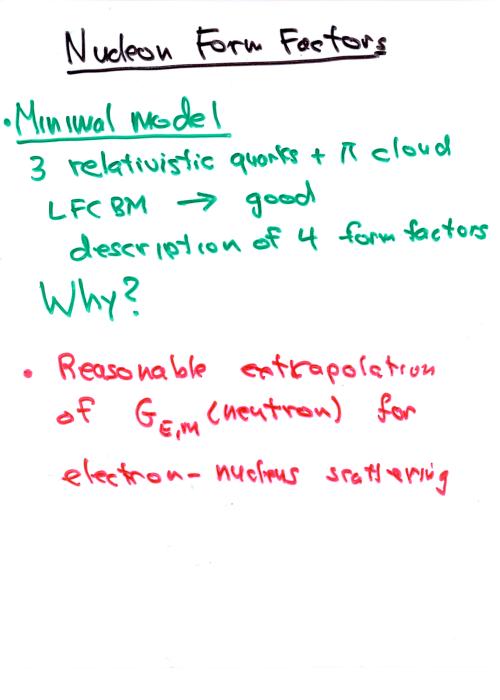 Nucleon Form Factors
• Minimal model
3 relativistic quarks + π cloud
LFCBM → good
description of 4 form factors
Why?
• Reasonable extrapolation
of G_{E,M} (neutron) for
electron-nucleus scattering